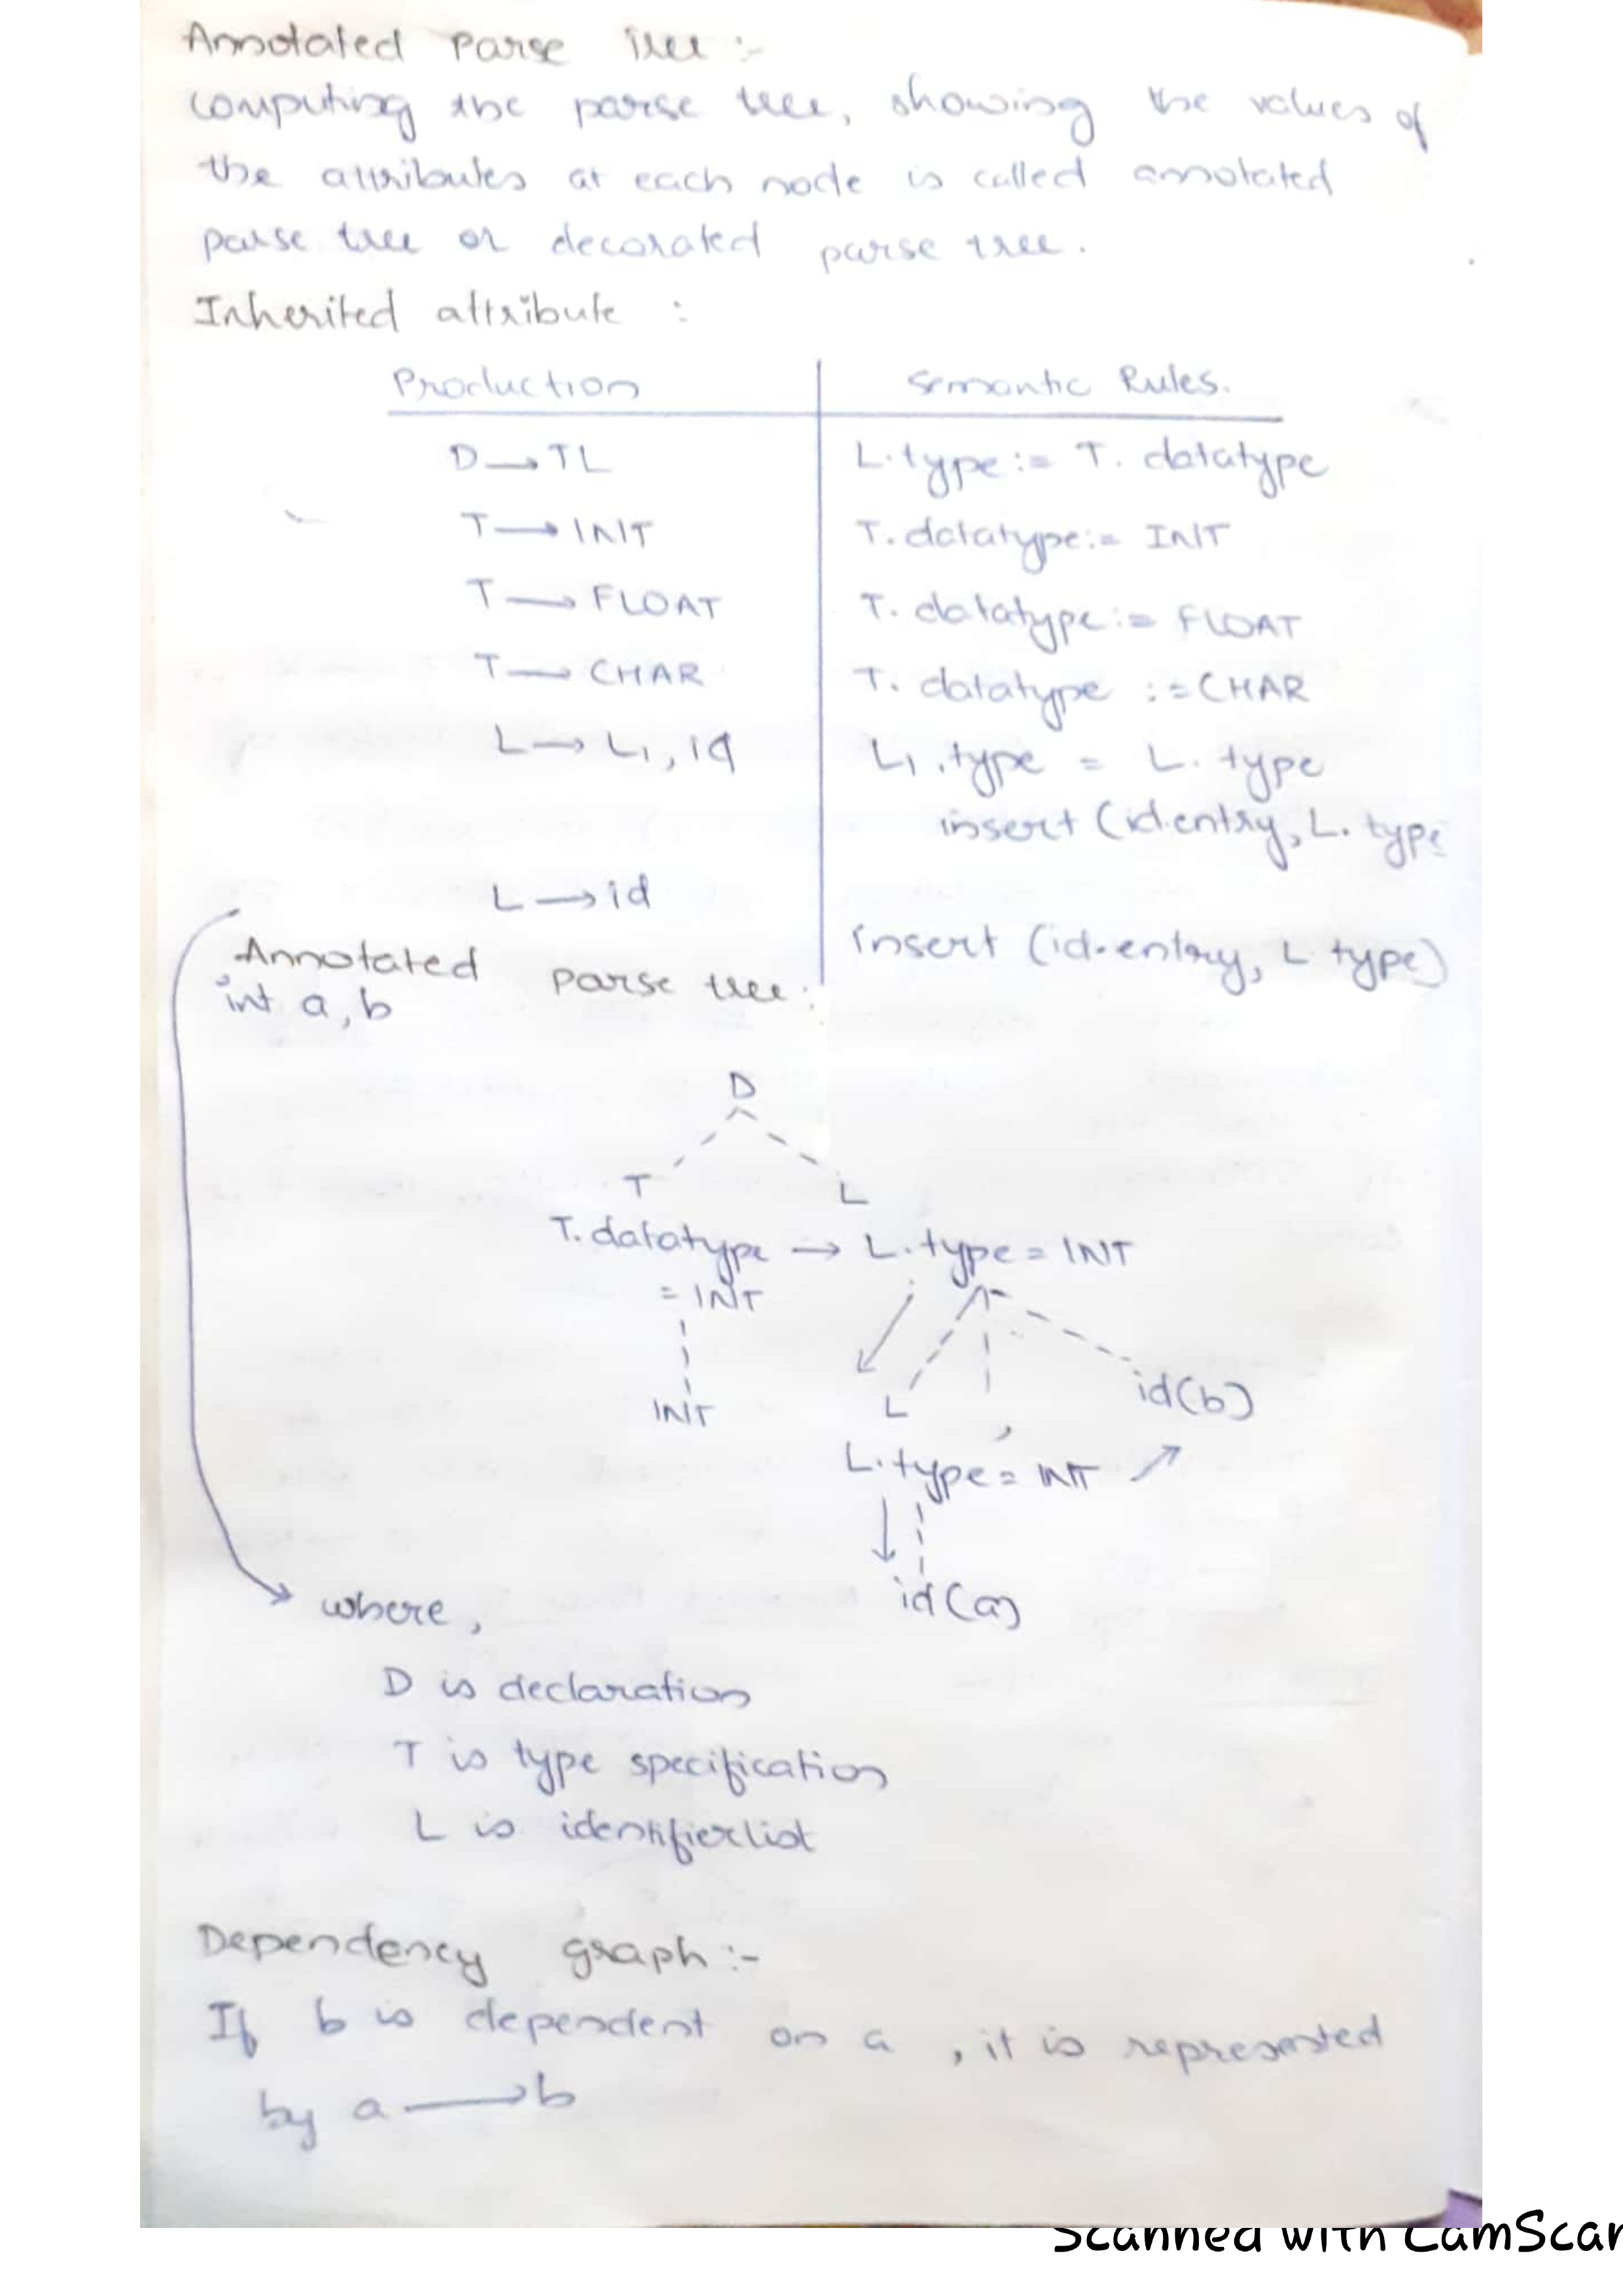 Annotated Parse tree :-
Computing the parse tree, showing the values of
the attributes at each node is called annotated
parse tree or decorated parse tree.
Inherited attribute :
Production | Semantic Rules.
D → TL | L.type := T. datatype
T → INIT | T. datatype := INIT
T → FLOAT | T. datatype := FLOAT
T → CHAR | T. datatype := CHAR
L → L1, id | L1.type = L. type
insert (id.entry, L. type
L → id
insert (id.entry, L. type)
Annotated parse tree :
int a, b
D
T L
T. datatype → L.type = INT
= INT
INT
L , id(b)
L.type = INT
id(a)
where,
D is declaration
T is type specification
L is identifierlist
Dependency graph :-
If b is dependent on a , it is represented
by a → b
Scanned with CamScan